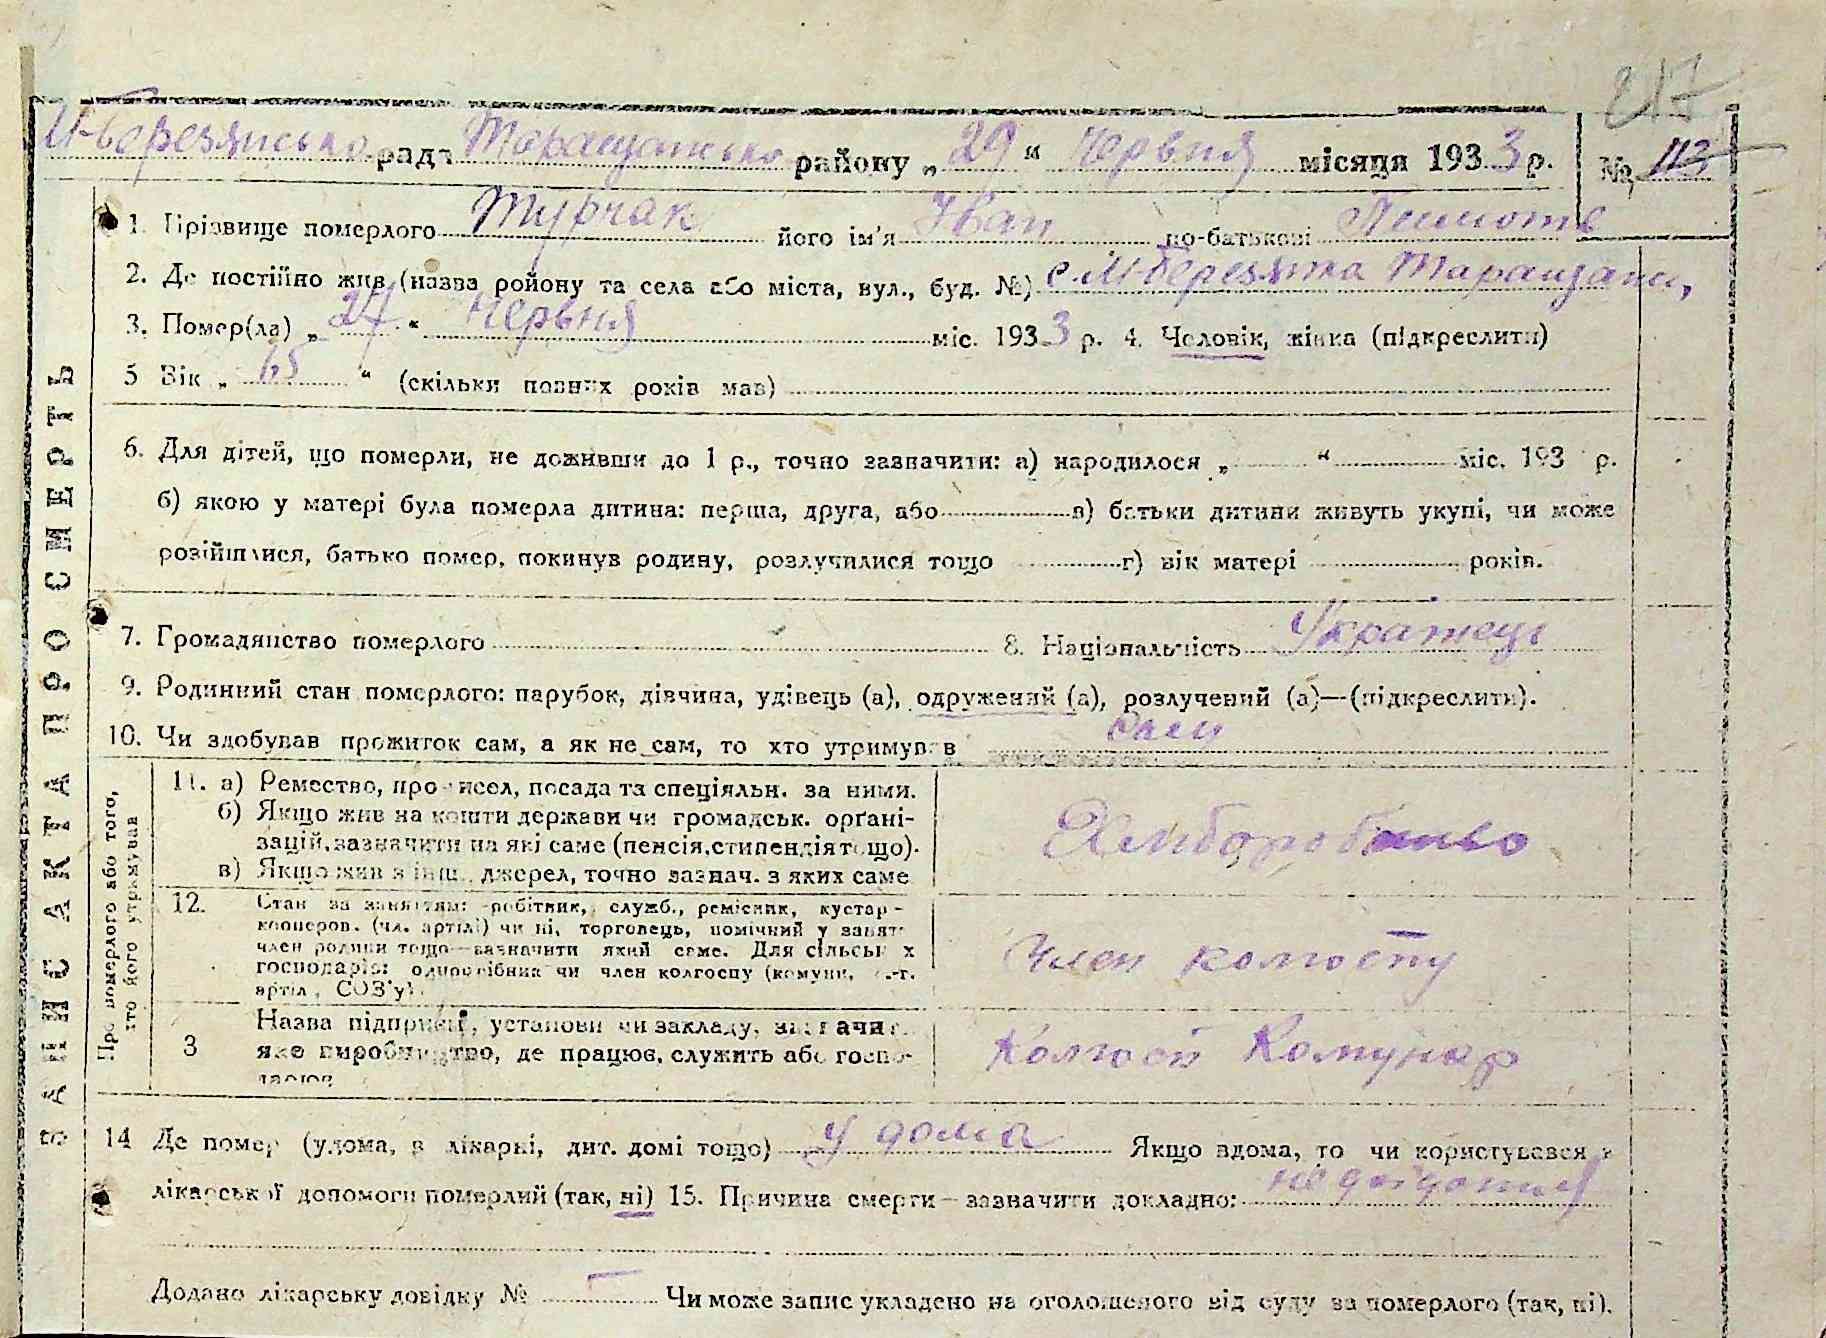 217
М-березянсько рада Таращансько району „ 29 “ червня місяця 1933 р. № 113
1. Прізвище померлого Турчак його ім’я Іван по-батькові Тимотв
2. Де постійно жив (назва ройону та села або міста, вул., буд. №) с М-березянка Таращан,
3. Помер(ла) „ 27 “ червня міс. 1933 р. 4. Чоловік, жінка (підкреслити)
5 Вік „ 65 “ (скільки повних років мав)
6. Для дітей, що померли, не доживши до 1 р., точно зазначити: а) народилося „ “ міс. 193 р.
б) якою у матері була померла дитина: перша, друга, або в) батьки дитини живуть укупі, чи може
розійшлися, батько помер, покинув родину, розлучилися тощо г) вік матері років.
7. Громадянство померлого 8. Національність Українець
9. Родинний стан померлого: парубок, дівчина, удівець (а), одружений (а), розлучений (а)—(підкреслити).
10. Чи здобував прожиток сам, а як не сам, то хто утримував сам
ЗАПИС АКТА ПРО СМЕРТЬ
Про померлого або того, хто його утримував
11. а) Ремество, промисел, посада та спеціяльн. за ними.
б) Якщо жив на кошти держави чи громадськ. орґані-
зацій, зазначити на які саме (пенсія, стипендія тощо).
в) Якщо жив з інш. джерел, точно зазнач. з яких саме
Хліборобство
12. Стан за заняттям: робітник, служб., ремісник, кустар-
кооперов. (чл. артілі) чи ні, торговець, помічний у занят.
член родини тощо—зазначити який саме. Для сільськ х
господарів: одноосібник чи член колгоспу (комуни, с.-г.
артіл, СОЗ’у).
Член колгоспу
3 Назва підприєм, установи чи закладу, зазначит.
яке виробництво, де працює, служить або госпо-
дарює
Колгосп Комунар
14 Де помер (удома, в лікарні, дит. домі тощо) у дома Якщо вдома, то чи користувався
лікарської допомоги померлий (так, ні) 15. Причина смерти—зазначити докладно: недоїдання
Додано лікарську довідку № Чи може запис укладено на оголошеного від суду за померлого (так, ні).